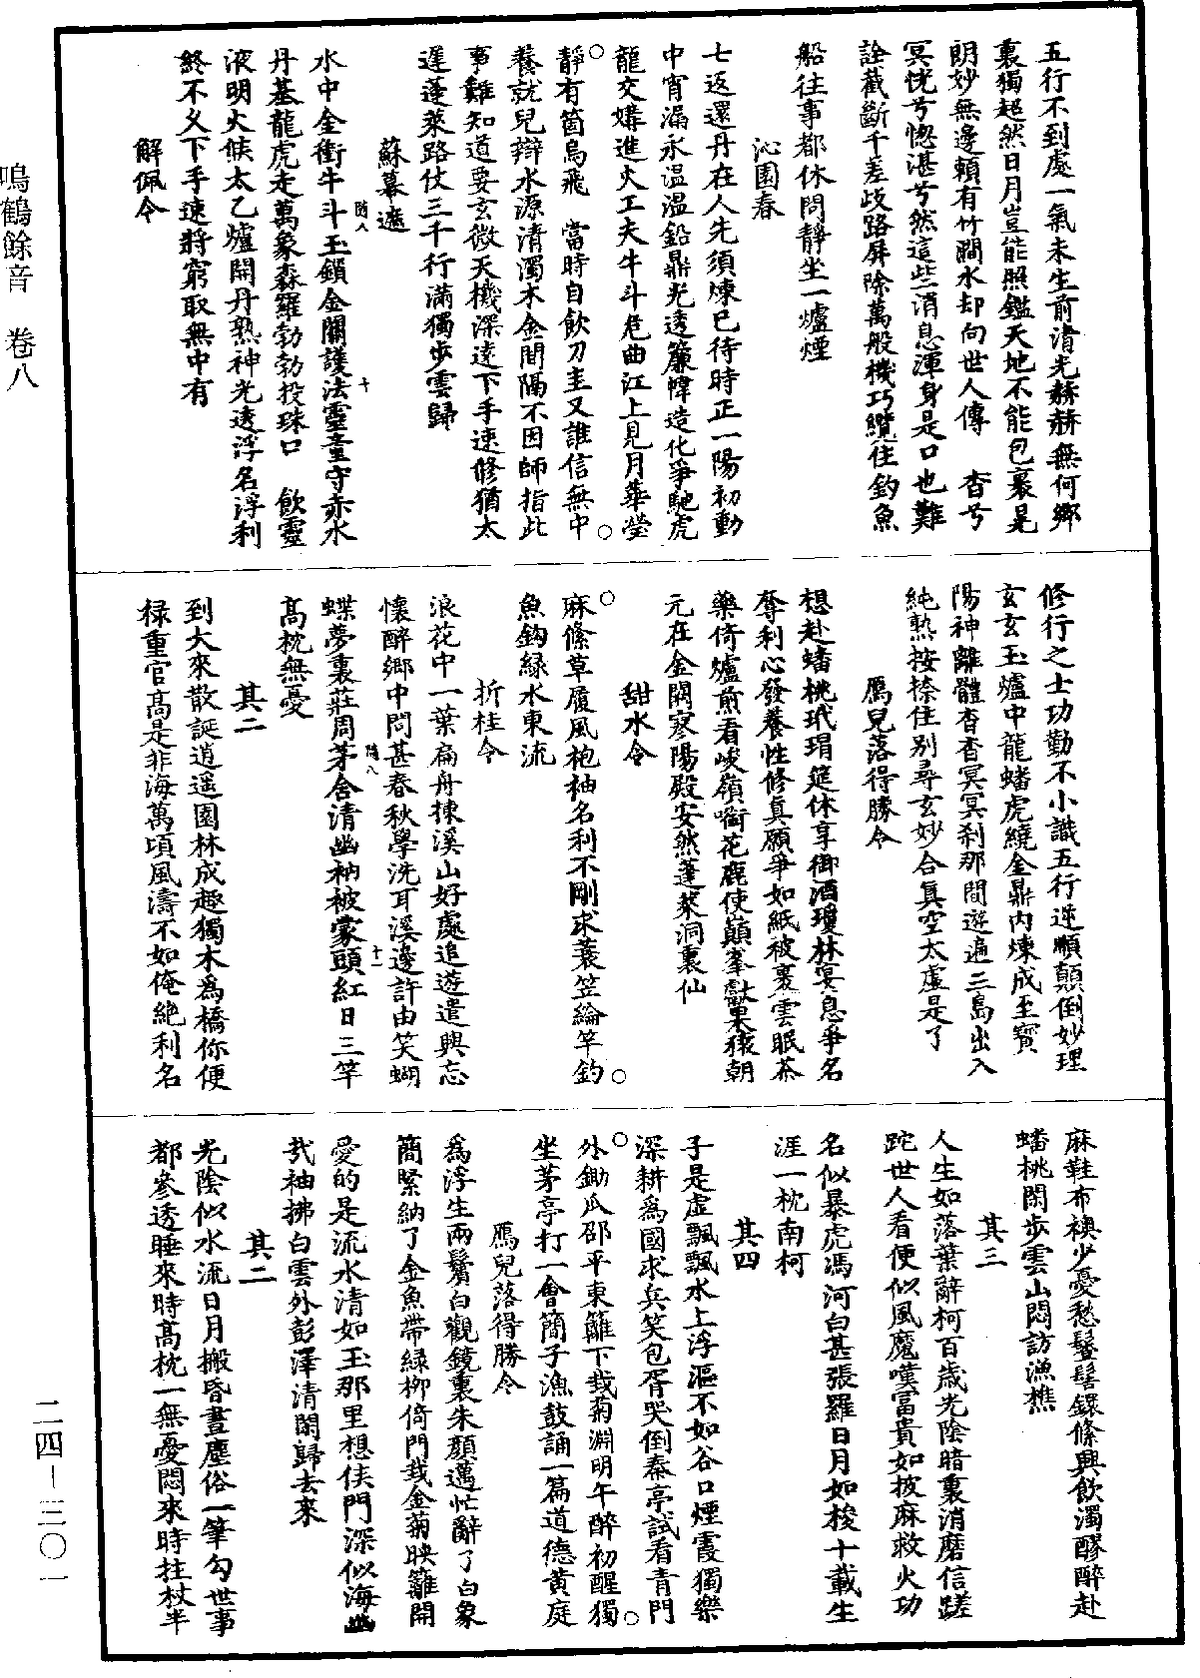 五行不到處一氣未生前清光赫赫無何鄉
裏獨超然日月豈能照鑑天地不能包裹是
朗妙無邊賴有竹澗水却向世人傳　杳兮
冥恍兮惚湛兮然這些消息渾身是口也難
詮截斷千差歧路屏除萬般機巧纜住釣魚
船往事都休問靜坐一爐煙
沁園春
七返還丹在人先須煉已待時正一陽初動
中宵漏永溫溫鉛鼎光透簾幃造化爭馳虎
龍交媾進火工夫牛斗危曲江上見月華瑩
靜有箇烏飛　當時自飲刀圭又誰信無中
養就兒辯水源清濁木金間隔不因師指此
事難知道要玄微天機深遠下手速修猶太
遲蓬萊路仗三千行滿獨步雲歸
蘇幕遮
水中金衝牛斗玉鎖金關護法靈童守赤水
丹基龍虎走萬象森羅勃勃投珠口　飲靈
液明火候太乙爐開丹熟神光透浮名浮利
終不久下手速將窮取無中有
解佩令
隨八
十
修行之士功勤不小識五行逆順顛倒妙理
玄玄玉爐中龍蟠虎繞金鼎內煉成至寶
陽神離體杳杳冥冥刹那間遊遍三島出入
純熟按捺住別尋玄妙合真空太虛是了
鴈兒落得勝令
想赴蟠桃玳瑁筵休享御酒瓊林宴息爭名
奪利心發養性修真願爭如紙被裹雲眠茶
藥倚爐煎看峻嶺啣花鹿使巔峯獻菓猿朝
元在金闕寥陽殿安然蓬萊洞裏仙
甜水令
麻絛草履風袍袖名利不剛求蓑笠綸竿釣
魚鈎緑水東流
折桂令
浪花中一葉扁舟揀溪山好處追遊遣興忘
懷醉鄉中問甚春秋學洗耳溪邊許由笑蝴
蝶夢裏莊周茅舍清幽衲被蒙頭紅日三竿
高枕無憂
隨八
十一
其二
到大來散誕逍遥園林成趣獨木爲橋你便
禄重官高是非海萬頃風濤不如俺絶利名
麻鞋布襖少憂愁鬅髻鐶絛興飲濁醪醉赴
蟠桃閑步雲山悶訪漁樵
其三
人生如落葉辭柯百歲光陰暗裏消磨信蹉
跎世人看便似風魔嘆富貴如披麻救火功
名似暴虎馮河白甚張羅日月如梭十載生
涯一枕南柯
其四
子是虛飄飄水上浮漚不如谷口煙霞獨樂
深耕爲國求兵笑包胥哭倒秦亭試看青門
外鋤瓜邵平東籬下栽菊淵明午醉初醒獨
坐茅亭打一會簡子漁鼓誦一篇道德黄庭
鴈兒落得勝令
爲浮生兩鬢白觀鏡裏朱顔邁忙辭了白象
簡緊納了金魚帶緑柳倚門栽金菊映籬開
愛的是流水清如玉那里想侯門深似海幽
哉袖拂白雲外彭澤清閑歸去來
其二
光陰似水流日月搬昏晝塵俗一筆勾世事
都參透睡來時高枕一無憂悶來時拄杖半
鳴鶴餘音　卷八
二四－三〇一